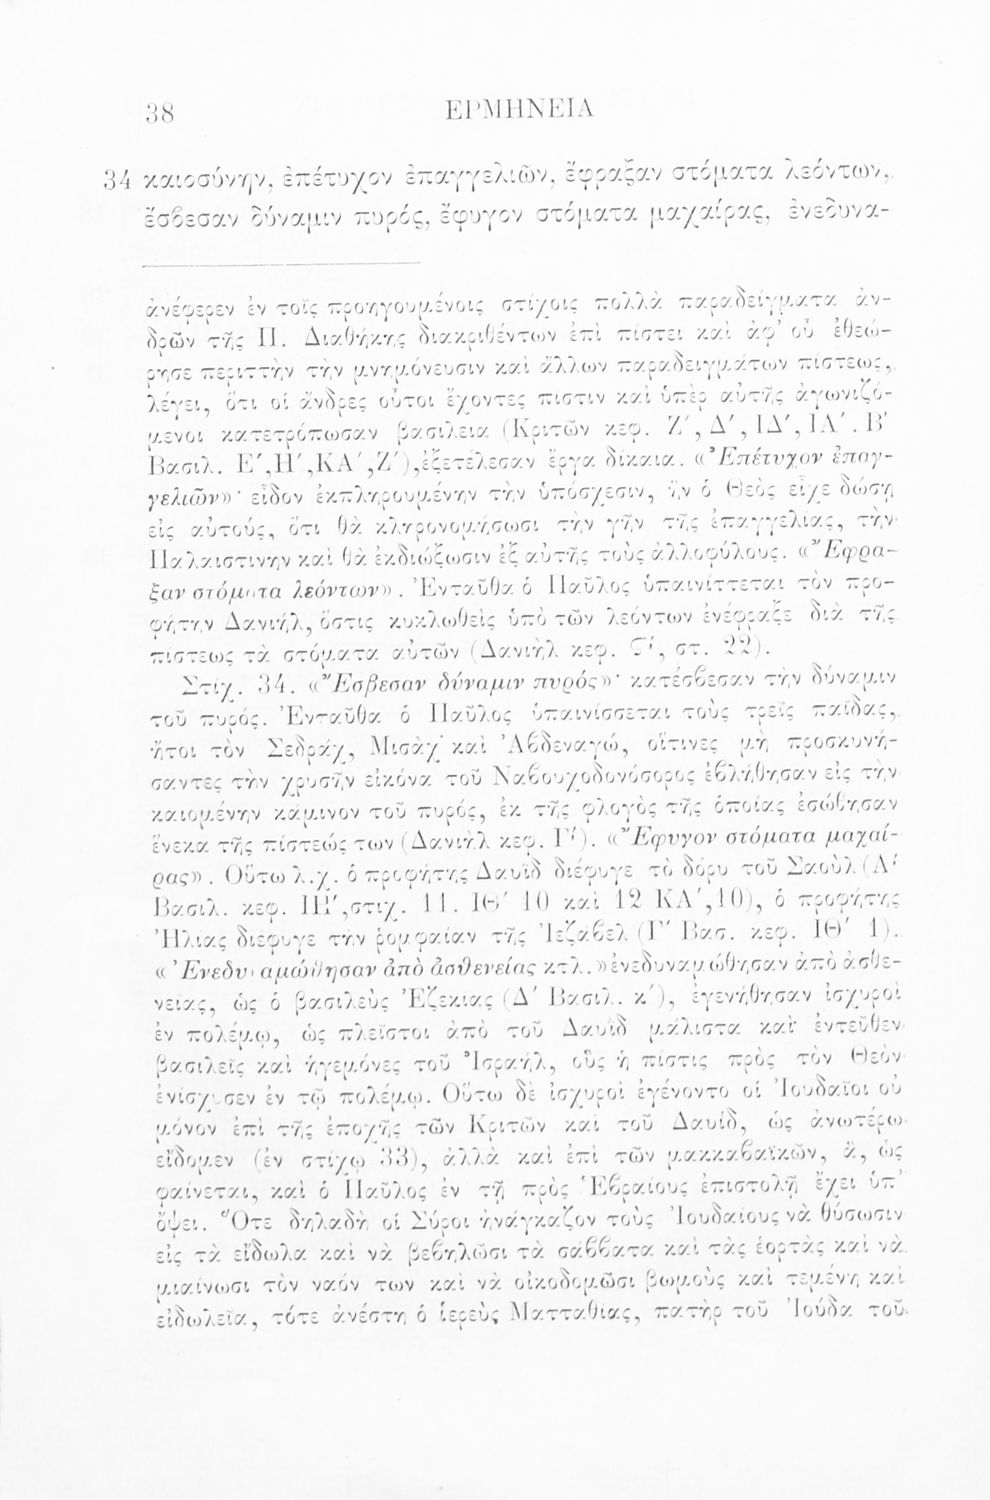 38 ΕΡΜΗΝΕΙΑ
34 καιοσύνην, ἐπέτυχον ἐπαγγελιῶν, ἔφραξαν στόματα λεόντων,
ἔσβεσαν δύναμιν πυρός, ἔφυγον στόματα μαχαίρας, ἐνεδυνα-
ἀνέφερεν ἐν τοῖς προηγουμένοις στίχοις πολλὰ παραδείγματα ἀν-
δρῶν τῆς Π. Διαθήκης διακριθέντων ἐπὶ πίστει καὶ ἀφ' οὗ ἐθεώ-
ρησε περιττὴν τὴν μνημόνευσιν καὶ ἄλλων παραδειγμάτων πίστεως,
λέγει, ὅτι οἱ ἄνδρες οὗτοι ἔχοντες πίστιν καὶ ὑπὲρ αὐτῆς ἀγωνιζό-
μενοι κατετρόπωσαν βασίλεια (Κριτῶν κεφ. Ζ', Δ', ΙΔ', ΙΑ'. Β'
Βασιλ. Ε', Η', ΚΑ', Ζ'), ἐξετέλεσαν ἔργα δίκαια. «Ἐπέτυχον ἐπαγ-
γελιῶν»· εἶδον ἐκπληρουμένην τὴν ὑπόσχεσιν, ἣν ὁ Θεὸς εἶχε δώσῃ
εἰς αὐτούς, ὅτι θὰ κληρονομήσωσι τὴν γῆν τῆς ἐπαγγελίας, τὴν
Παλαιστίνην καὶ θὰ ἐκδιώξωσιν ἐξ αὐτῆς τοὺς ἀλλοφύλους. «Ἔφρα-
ξαν στόματα λεόντων». Ἐνταῦθα ὁ Παῦλος ὑπαινίττεται τὸν προ-
φήτην Δανιήλ, ὅστις κυκλωθεὶς ὑπὸ τῶν λεόντων ἐνέφραξε διὰ τῆς
πίστεως τὰ στόματα αὐτῶν (Δανιὴλ κεφ. Ϛ', στ. 22).
Στίχ. 34. «Ἔσβεσαν δύναμιν πυρός»· κατέσβεσαν τὴν δύναμιν
τοῦ πυρός. Ἐνταῦθα ὁ Παῦλος ὑπαινίσσεται τοὺς τρεῖς παῖδας,
ἤτοι τὸν Σεδράχ, Μισὰχ καὶ Ἀβδεναγώ, οἵτινες μὴ προσκυνή-
σαντες τὴν χρυσῆν εἰκόνα τοῦ Ναβουχοδονόσορος ἐβλήθησαν εἰς τὴν
καιομένην κάμινον τοῦ πυρός, ἐκ τῆς φλογὸς τῆς ὁποίας ἐσώθησαν
ἕνεκα τῆς πίστεώς των (Δανιὴλ κεφ. Γ'). «Ἔφυγον στόματα μαχαί-
ρας». Οὕτω λ.χ. ὁ προφήτης Δαυῒδ διέφυγε τὸ δόρυ τοῦ Σαοὺλ (Α'
Βασιλ. κεφ. ΙΗ', στιχ. 11. ΙΘ' 10 καὶ 12 ΚΑ', 10), ὁ προφήτης
Ἠλίας διέφυγε τὴν ῥομφαίαν τῆς Ἰεζάβελ (Γ' Βασ. κεφ. ΙΘ' 1).
«Ἐνεδυναμώθησαν ἀπὸ ἀσθενείας κτλ.» ἐνεδυναμώθησαν ἀπὸ ἀσθε-
νείας, ὡς ὁ βασιλεὺς Ἐζεκίας (Δ' Βασιλ. κ'), ἐγενήθησαν ἰσχυροὶ
ἐν πολέμῳ, ὡς πλεῖστοι ἀπὸ τοῦ Δαυῒδ μάλιστα καὶ ἐντεῦθεν
βασιλεῖς καὶ ἡγεμόνες τοῦ Ἰσραήλ, οὓς ἡ πίστις πρὸς τὸν Θεὸν
ἐνίσχυσεν ἐν τῷ πολέμῳ. Οὕτω δὲ ἰσχυροὶ ἐγένοντο οἱ Ἰουδαῖοι οὐ
μόνον ἐπὶ τῆς ἐποχῆς τῶν Κριτῶν καὶ τοῦ Δαυίδ, ὡς ἀνωτέρω
εἴδομεν (ἐν στίχῳ 33), ἀλλὰ καὶ ἐπὶ τῶν μακκαβαϊκῶν, ἅ, ὡς
φαίνεται, καὶ ὁ Παῦλος ἐν τῇ πρὸς Ἑβραίους ἐπιστολῇ ἔχει ὑπ'
ὄψει. Ὅτε δηλαδὴ οἱ Σύροι ἠνάγκαζον τοὺς Ἰουδαίους νὰ θύσωσιν
εἰς τὰ εἴδωλα καὶ νὰ βεβηλῶσι τὰ σάββατα καὶ τὰς ἑορτὰς καὶ νὰ
μιαίνωσι τὸν ναόν των καὶ νὰ οἰκοδομῶσι βωμοὺς καὶ τεμένη καὶ
εἰδωλεῖα, τότε ἀνέστη ὁ ἱερεὺς Ματταθίας, πατὴρ τοῦ Ἰούδα τοῦ